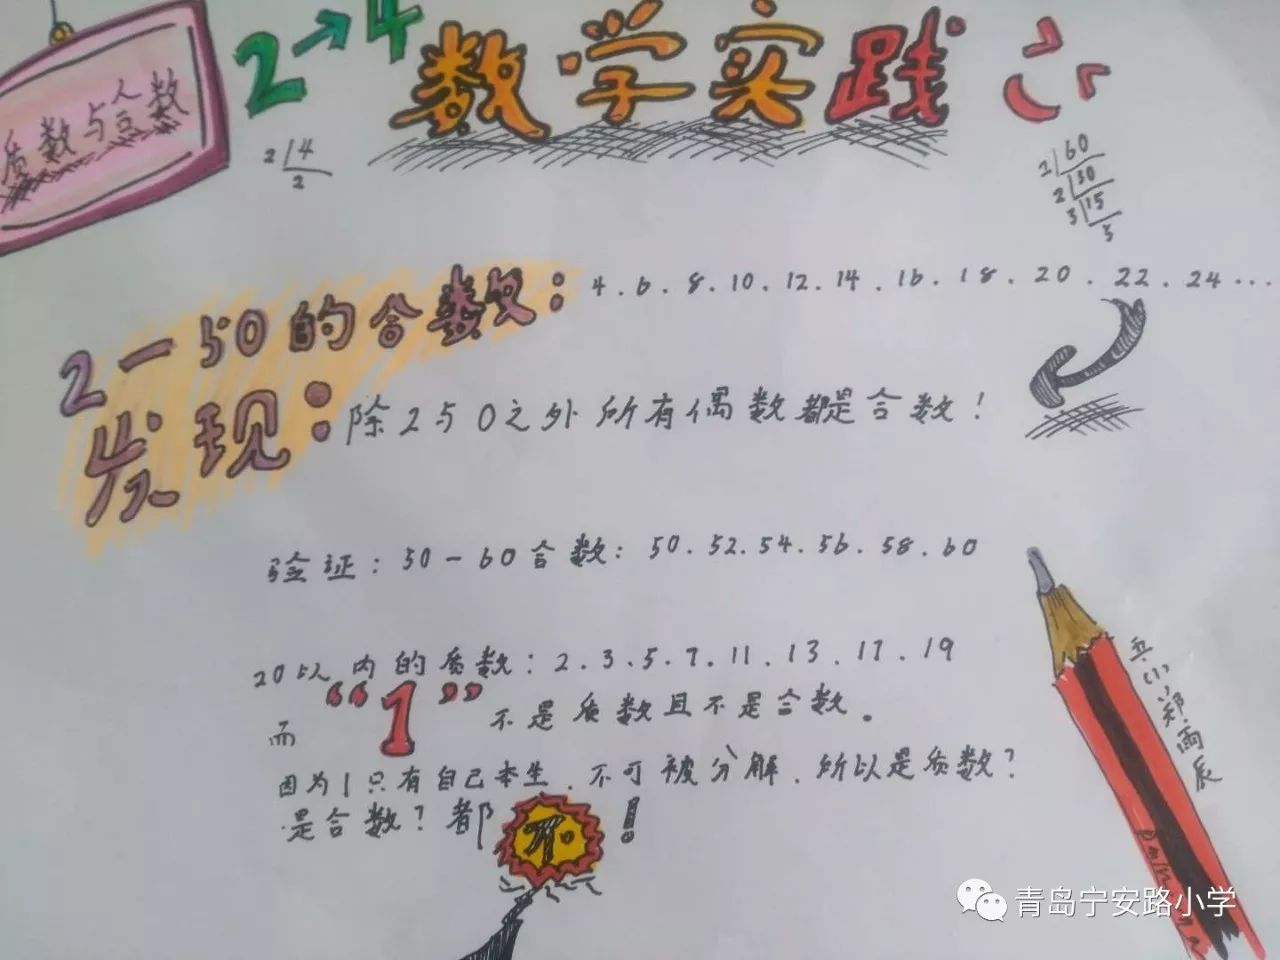 质数与合数
2→4
数学实践
2 4
2
2 60
2 30
3 15
5
2-50的合数:4.6.8.10.12.14.16.18.20.22.24...
发现:除2与0之外所有偶数都是合数!
验证:50-60合数:50.52.54.56.58.60
20以内的质数:2.3.5.7.11.13.17.19
而“1”不是质数且不是合数。
因为1只有自己本生.不可被分解.所以是质数?
是合数?都不!
郑雨辰
青岛宁安路小学